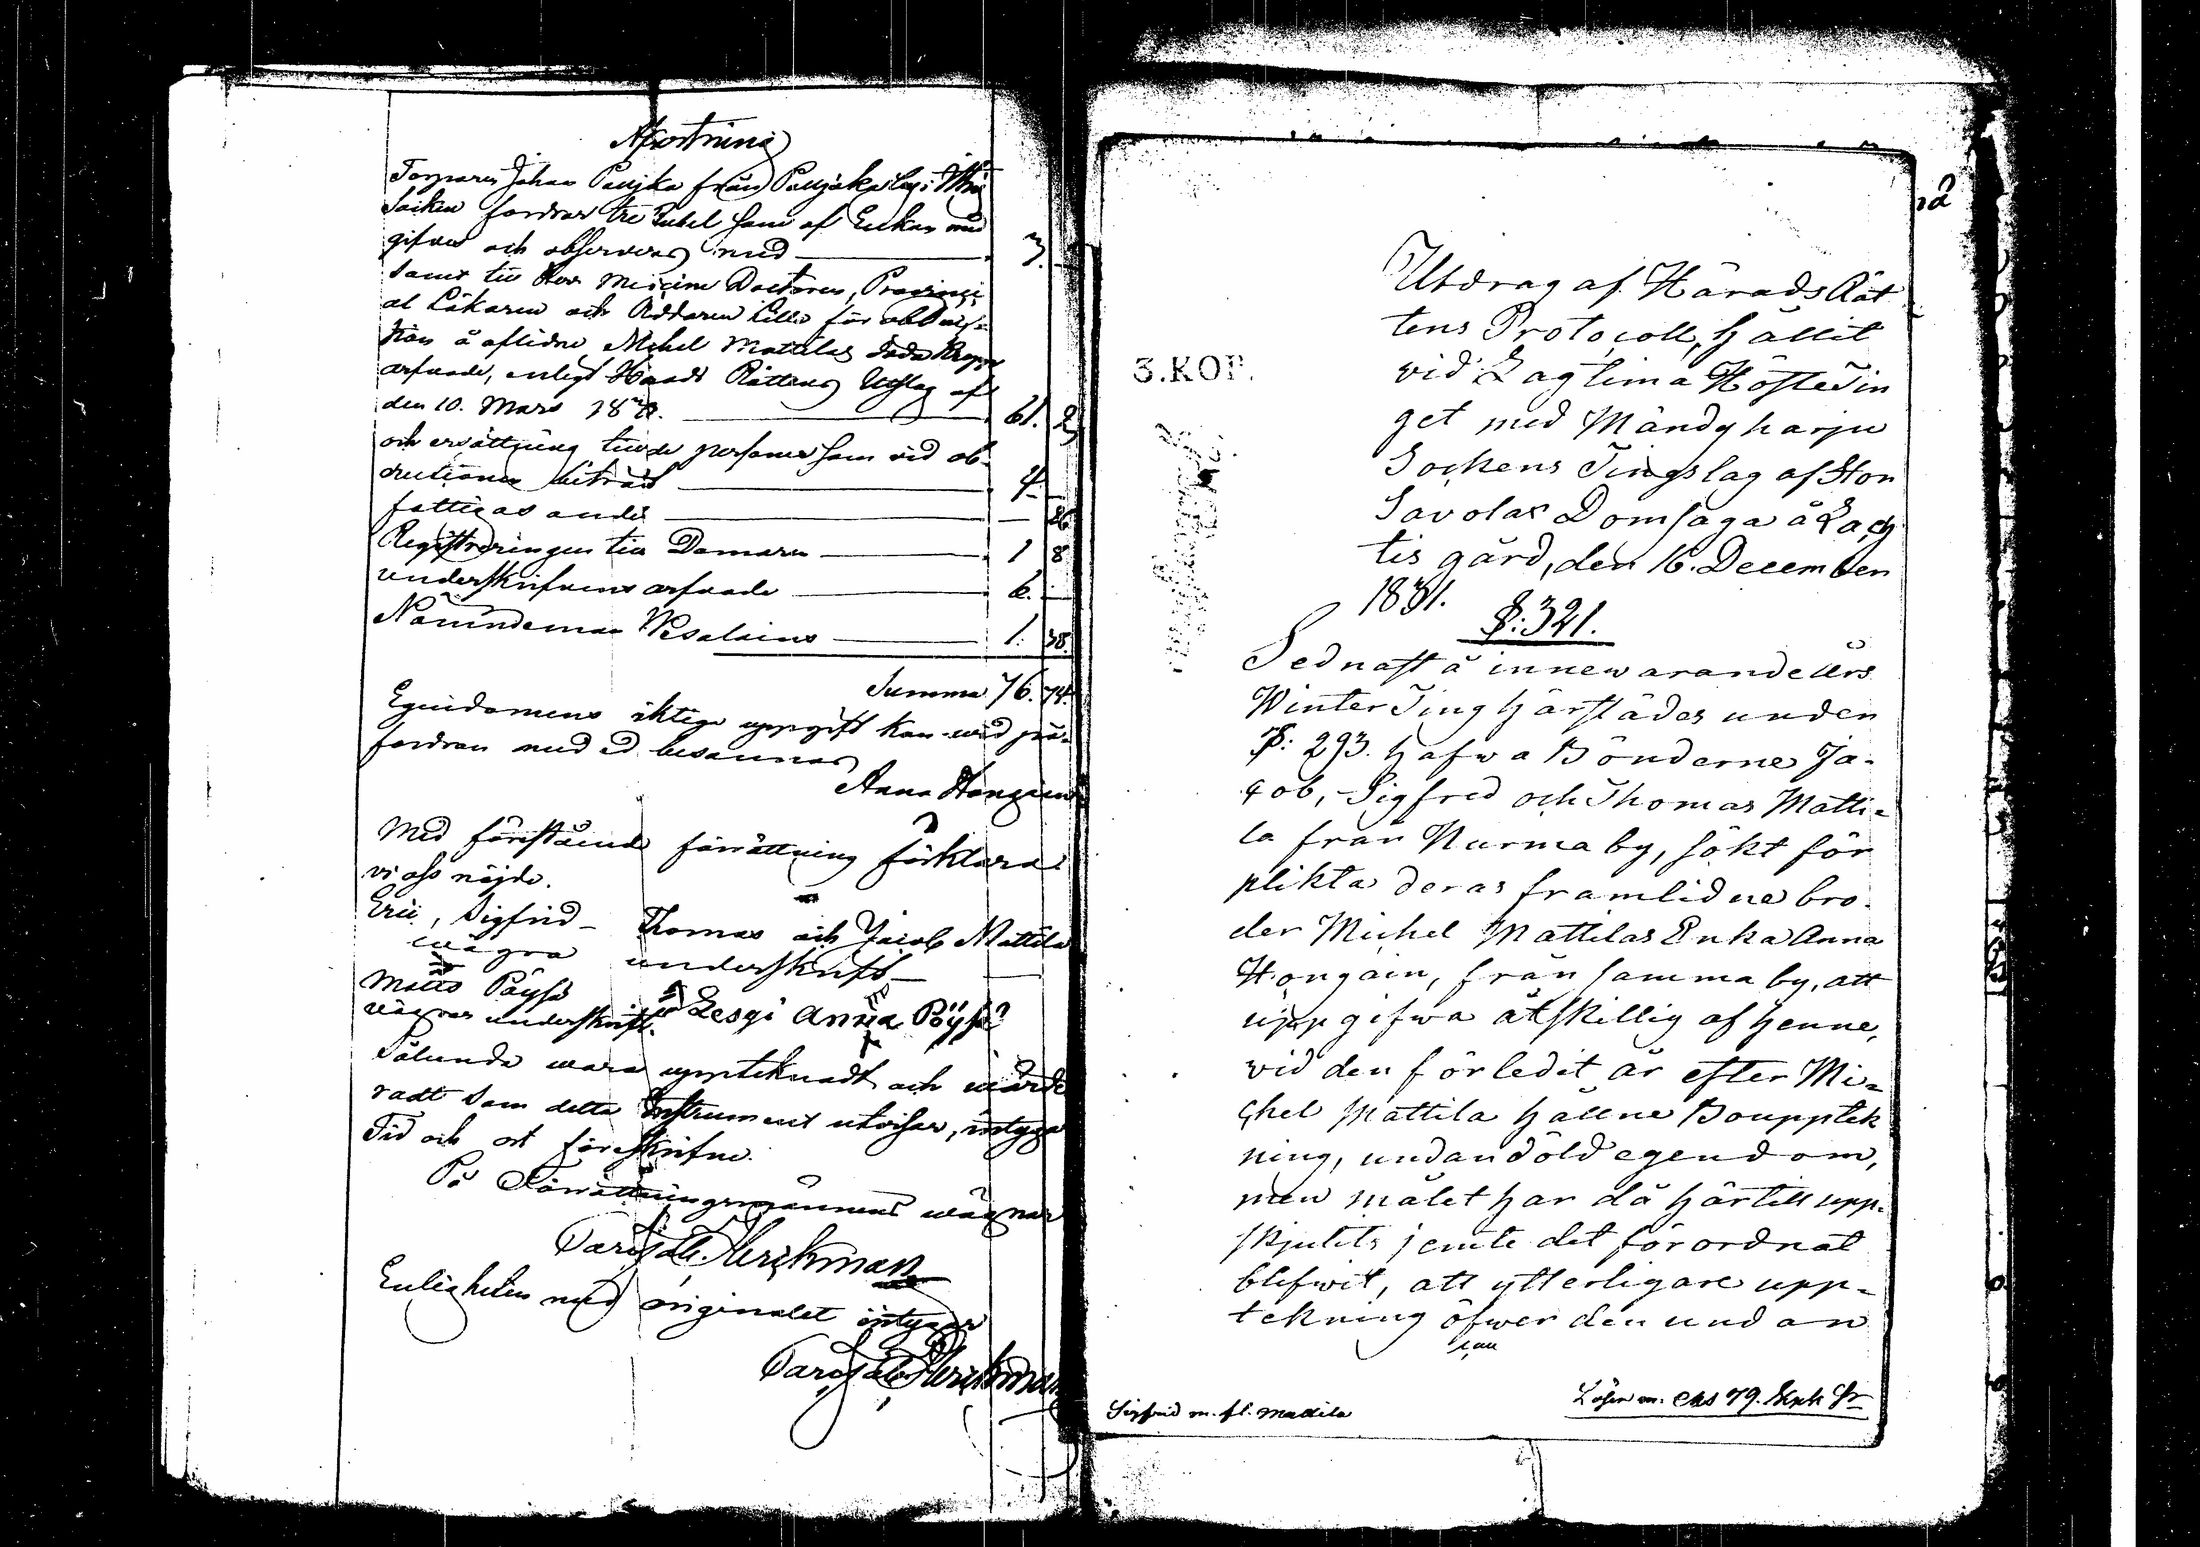 Afkortning
Torparen Johan Paujka från Paujakala by i
Socken fordrar tre Rubel som af Enkan med
gifves och observeras med 3.
samt till Herr Medicine Doctoren, Provinci
al Läkaren och Riddaren för obduc
tion å aflidne Mickel Mattilas döda Kropp
arfvode, enligt Härads Rättens Utslag af
den 10. Mars 61. 2
och ersättning till de personer som vid ob-
ductionen biträdt 4.
fattigas andel 26
Registreringen till Domaren 1 8
underskrifvens arfvode 6.
Nämndeman Pesolainus 1. 38.
Summa 76. 74.
Egendomens riktiga uppgift kan wid på-
fordran med ed besannas
Anna Hongain
Med förestående förrättning förklara
vi oss nöjde.
Eric, Sigfrid - Thomas och Jacob Mattila
wägna underskrift
Matts Pöysä Lesgi Anna Pöysä
wägnar underskrift.
Sålunda wara uppteknadt och wärde
radt som detta Instrument utvisar, intyga
Tid och ort föreskrifne.
På Förrättningsmännens wägnar
Enligheten med originalet intygar
12
3.KOP.
Utdrag af Härads Rät
tens Protocoll, hållit
vid Lagtima Höste Tin
get med Mändyharju
Sockens Tingslag af Stor
Savolax Domsaga å Lach
tis gård, den 16. December
1831.
§: 321.
Sednast å innewarande års
Winter Ting härstädes under
§: 293. hafwa Bönderne Ja-
cob, Sigfred och Thomas Matti-
la från Nurmaby, sökt för
plikta deras framlidne bro-
der Michel Mattilas Enka Anna
Hongain, från samma by, att
uppgifwa åtskillig af henne,
vid den förledit år efter Mi-
chel Mattila hållne Boupptek
ning, undandöld egendom,
men målet har då härtill upp-
skjutits jemte det förordnat
blifwit, att ytterligare upp-
tekning öfwer den undan
Sigfrid m. fl. Mattila
Lösen m. Ex. 79.